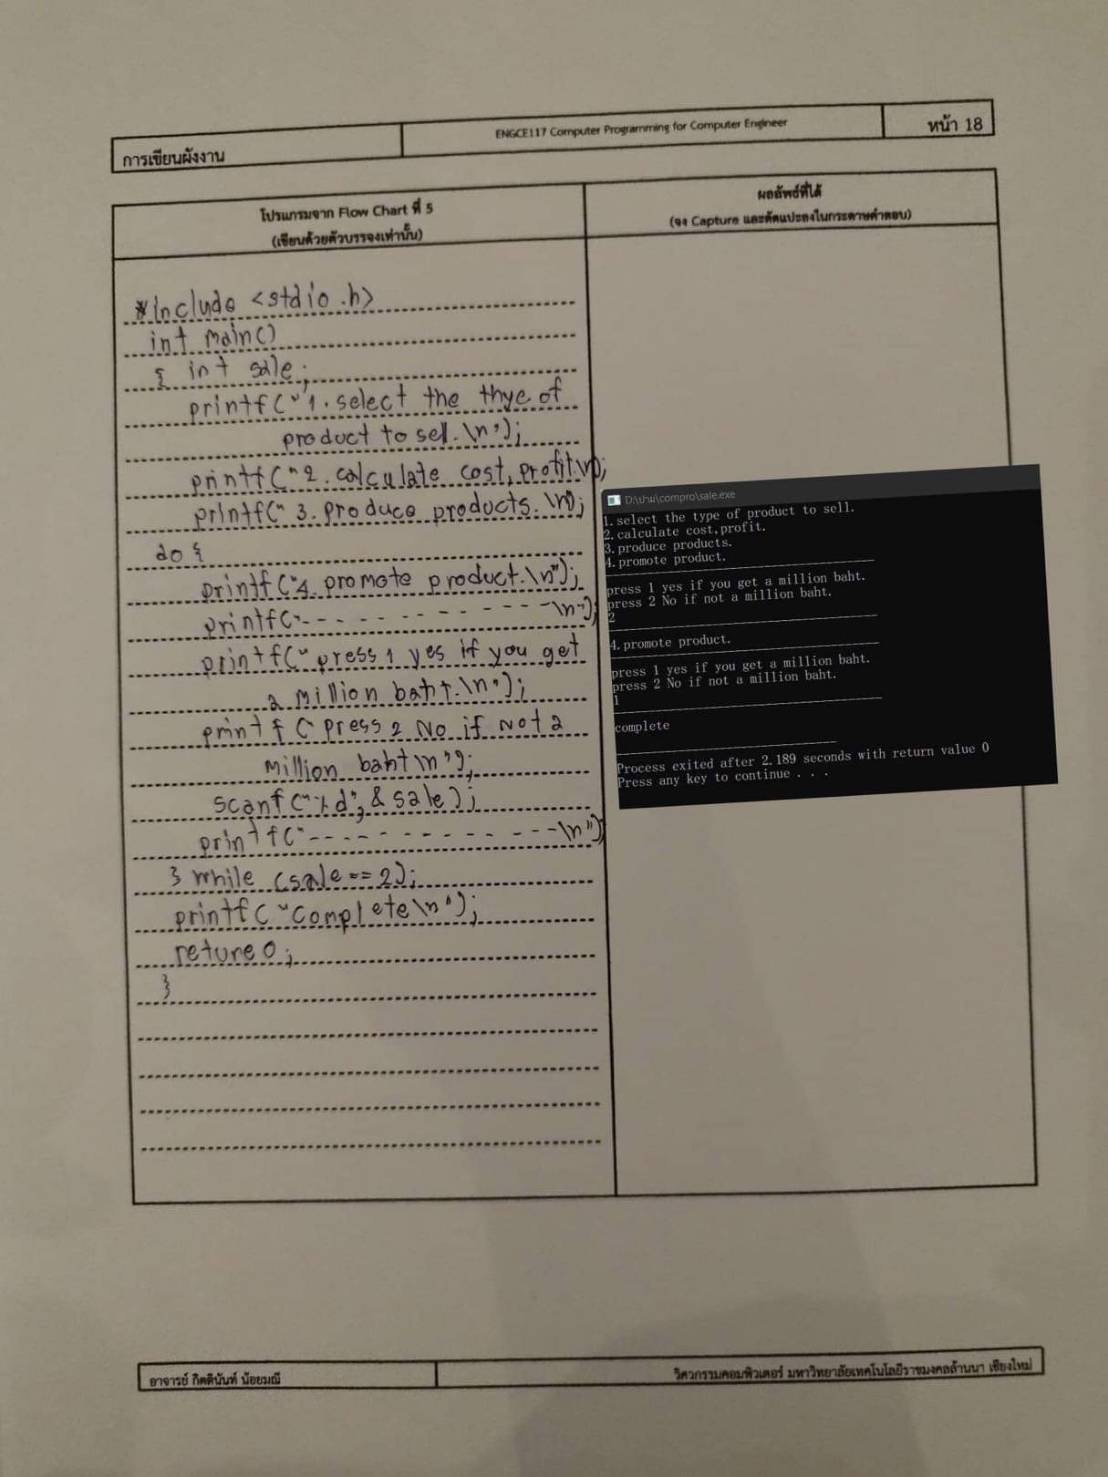 การเขียนผังงาน
ENGCE117 Computer Programming for Computer Engineer
หน้า 18
โปรแกรมจาก Flow Chart ที่ 5
(เขียนด้วยตัวบรรจงเท่านั้น)
ผลลัพธ์ที่ได้
(จง Capture และตัดแปะลงในกระดาษคำตอบ)
#include <stdio.h>
int main()
{ int sale;
printf("1.select the thye of
product to sell.\n");
printf("2.calculate cost,profit.\n");
printf("3.produce products.\n");
do {
printf("4.promote product.\n");
printf("-----------\n");
printf("press 1 yes if you get
a million baht.\n");
printf("press 2 No if not a
million baht\n");
scanf("%d",&sale);
printf("------------\n");
} while (sale==2);
printf("complete\n");
reture 0;
}
D:\thu\compro\sale.exe
1.select the type of product to sell.
2.calculate cost,profit.
3.produce products.
4.promote product.
press 1 yes if you get a million baht.
press 2 No if not a million baht.
2
4.promote product.
press 1 yes if you get a million baht.
press 2 No if not a million baht.
1
complete
Process exited after 2.189 seconds with return value 0
Press any key to continue . . .
อาจารย์ กิตตินันท์ น้อยมณี
วิศวกรรมคอมพิวเตอร์ มหาวิทยาลัยเทคโนโลยีราชมงคลล้านนา เชียงใหม่